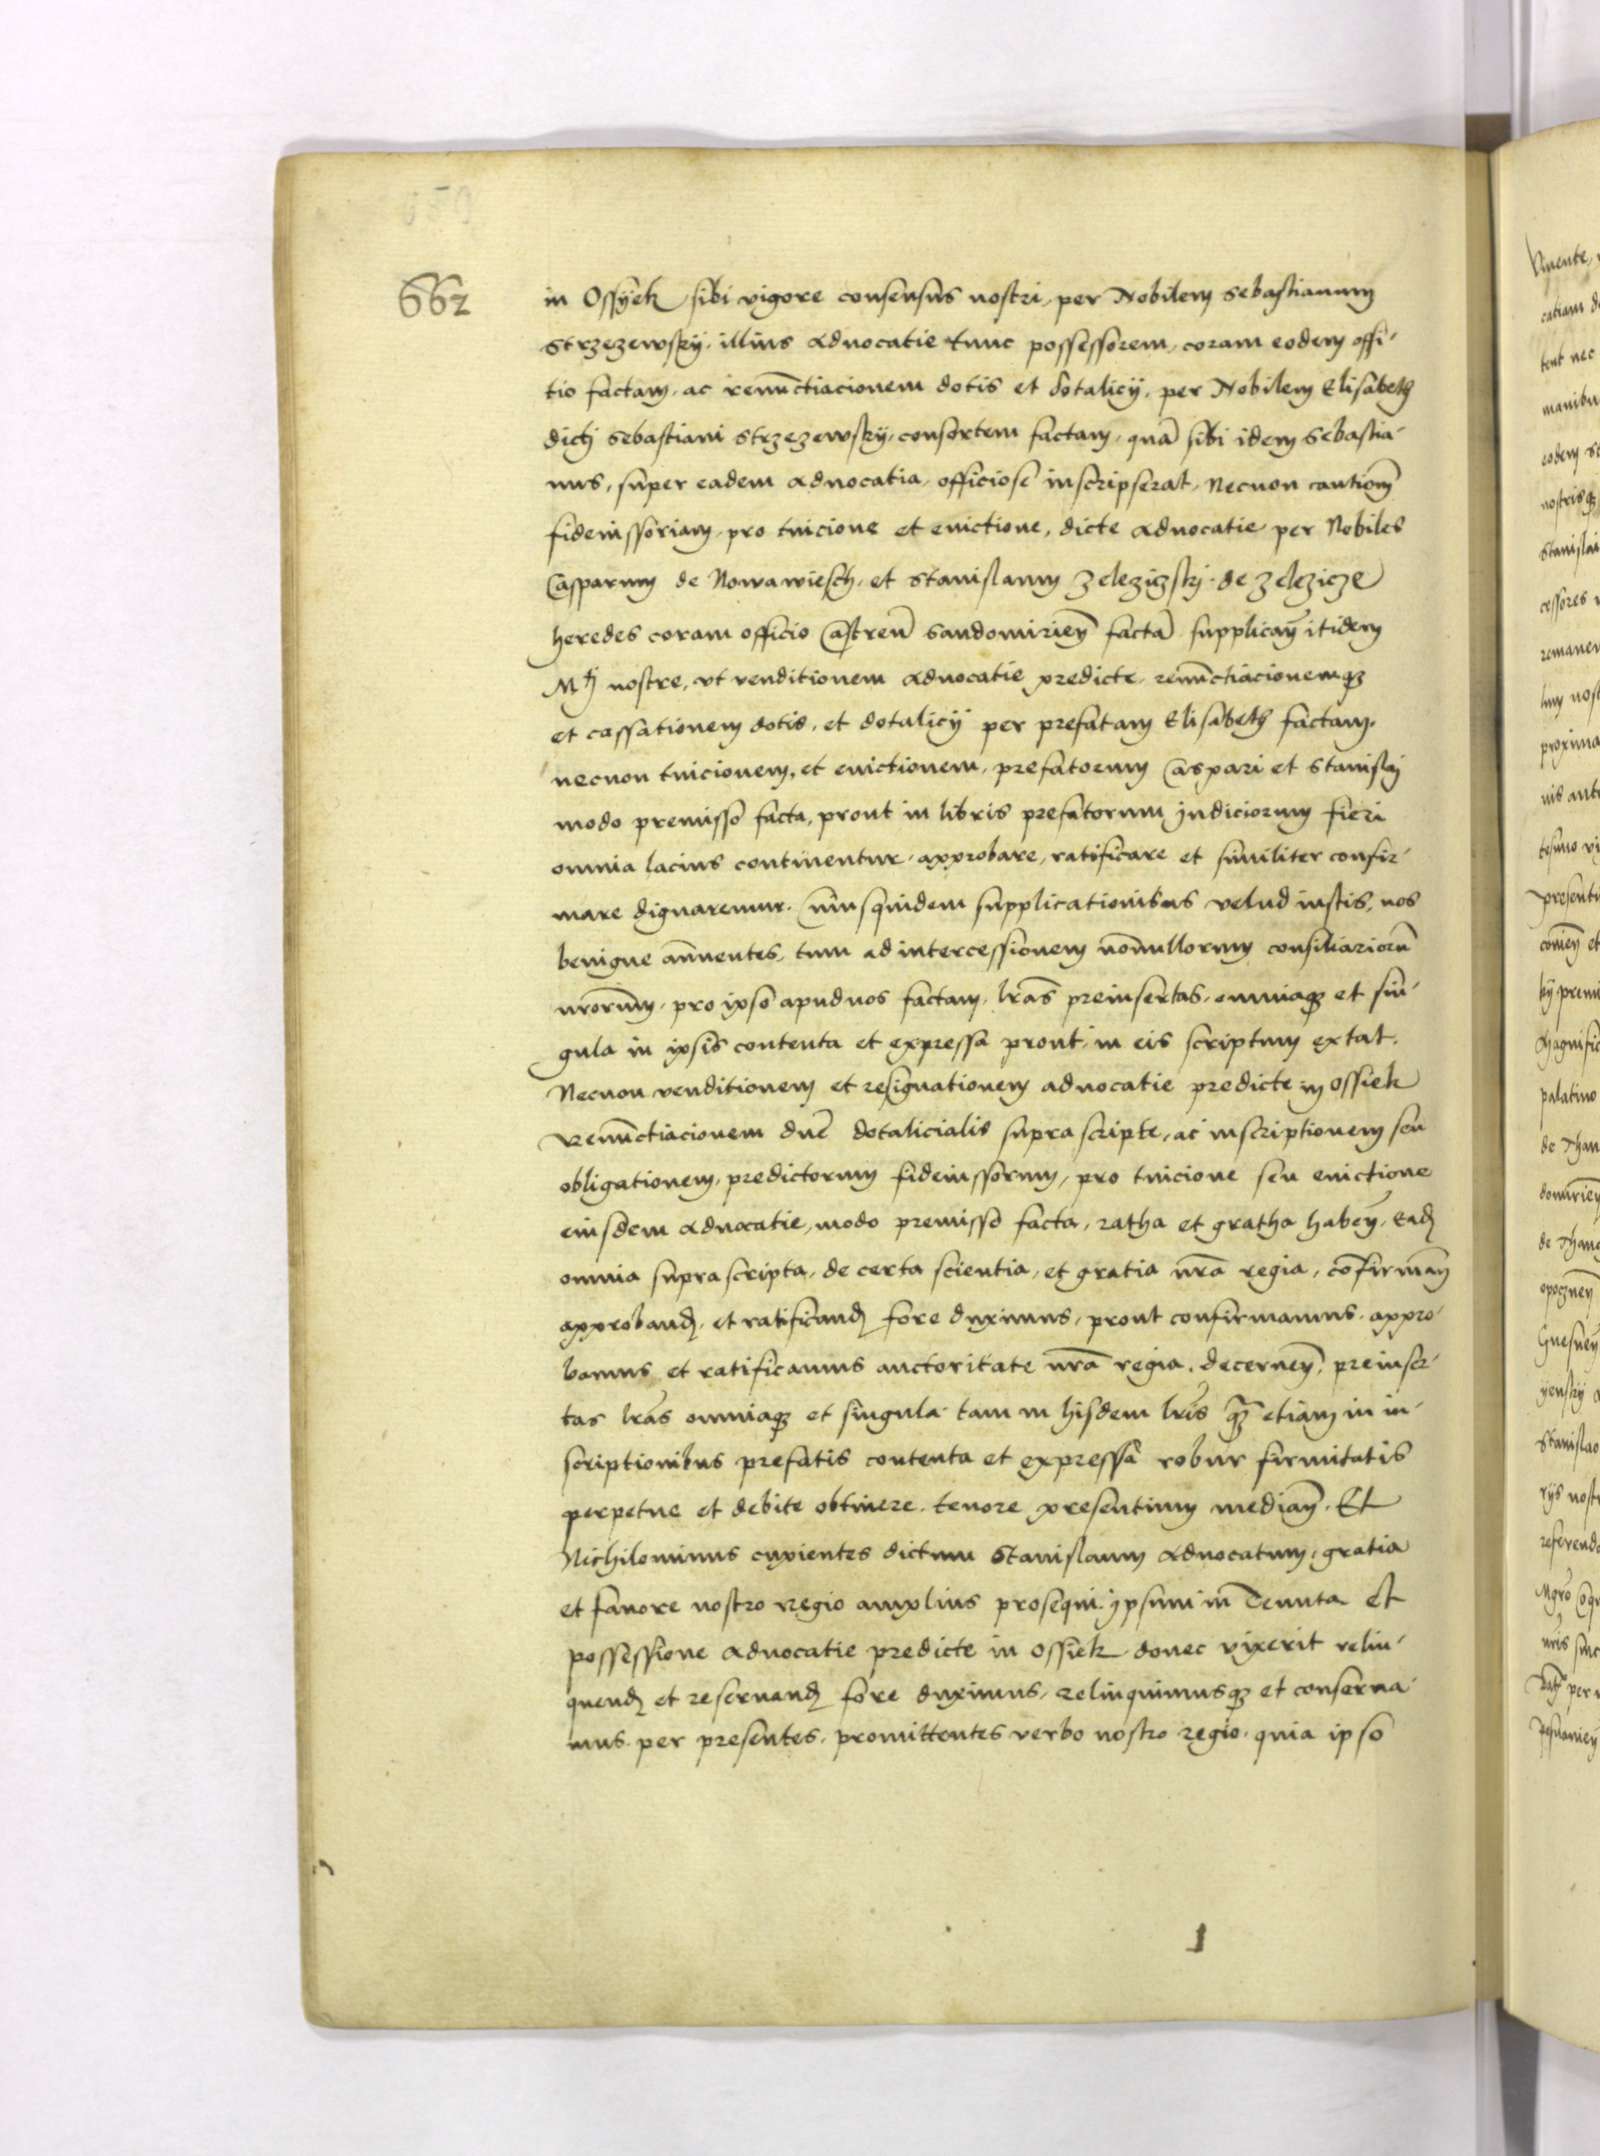 662
in Ossyek sibi vigore consensus nostri, per Nobilem Sebastianum
Strzezewsky, illius advocatie tunc possessorem, coram eodem offi-
tio factam, ac renunctiacionem dotis et dotalicij, per Nobilem Elisabeth
dicti Sebastiani Strzezewsky, consortem factam, quam sibi idem Sebastia-
nus, super eadem advocatia, officiose inscripserat, Necnon cautionem
fideiussoriam, pro tuicione et evictione, dicte advocatie per Nobiles
Casparum de Nowawiesch, et Stanislaum Zelezizski de Zelezicze
heredes coram officio Castren Sandomirien facta supplicavit itidem
Mti nostre, ut venditionem advocatie predicte, renunctiacionemque
et cassationem dotis, et dotalicij per prefatam Elisabeth factam,
necnon tuicionem, et evictionem, prefatorum Caspari et Stanislai
modo premisso facta, prout in libris prefatorum iudiciorum fieri
omnia lacius continentur, approbare, ratificare et similiter confir-
mare dignaremur. Cuiusquidem supplicationibus velud iustis, nos
benigne annuentes, tum ad intercessionem nonnullorum consiliariorum
nrorum, pro ipso apud nos factam, lras preinsertas, omniaque et sin-
gula in ipsis contenta et expressa prout in eis scriptum extat.
Necnon venditionem et resignationem advocatie predicte in Ossiek
Renunctiacionem dne dotalicialis supra scripte, ac inscriptionem seu
obligationem, predictorum fideiussorum, pro tuicione seu evictione
eiusdem advocatie, modo premisso facta, ratha et gratha haben, Ead
omnia supra scripta, de certa scientia, et gratia nra regia, confirman
approband, et ratificand fore duximus, prout confirmamus, appro-
bamus et ratificamus auctoritate nra regia, decernen, preinser-
tas lras omniaque et singula tam in hisdem lris quam etiam in in-
scriptionibus prefatis contenta et expressa robur firmitatis
perpetue et debite obtinere, tenore presentium median. Et
Nichilominus cupientes dictum Stanislaum advocatum, gratia
et favore nostro regio amplius prosequi, ipsum in Tenuta et
possessione advocatie predicte in Ossiek donec vixerit relin-
quend et reservand fore duximus, relinquimusque et conserva-
mus per presentes, promittentes verbo nostro regio, quia ipso